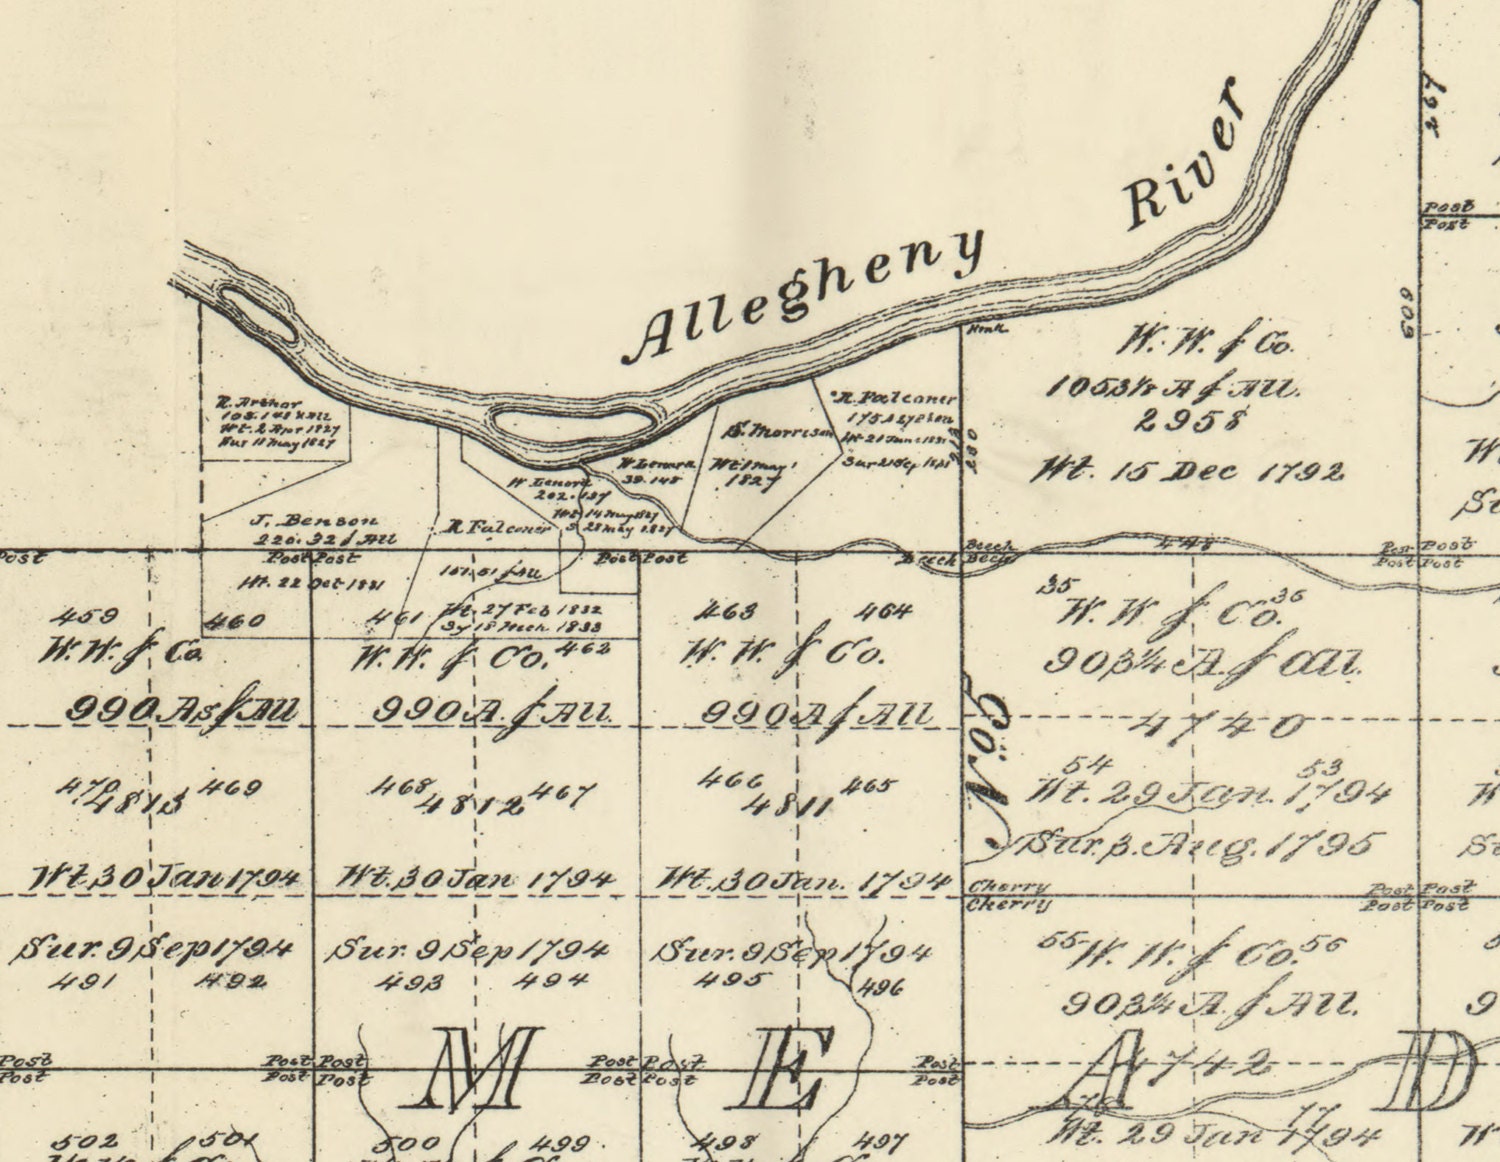 Allegheny River
Post
Post
609
W. W. & Co.
1053⅛ A & All.
2958
Wt. 15 Dec 1792
R. Arthur
Wt. 2 Apr 1827
Sur 11 May 1827
J. Benson
220. 32 & All
Wt. 22 Oct 1831
R Falconer
151.51 & All
Wt. 27 Feb 1832
Sy 18 Mch. 1833
W Lenora
202. 137
Wt 14 May 1827
S 28 May 1827
W Lenora
39. 148
S. Morrison
Wt 1 May
1827
R. Falconer
Post
Post Post
Post Post
Beech
Beech
Beech
Post
Post
459 460
W. W. & Co.
990 As & All
470 469
4813
Wt 30 Jan 1794
Sur. 9 Sep 1794
491 492
461 462
W. W. & Co.
990 A. & All.
468 467
4812
Wt. 30 Jan 1794
Sur. 9 Sep 1794
493 494
463 464
W. W. & Co.
990 A & All
466 465
4811
Wt. 30 Jan. 1794
Sur. 9 Sep 1794
495 496
Co. N.
35 36
W. W & Co.
903¼ A. & All.
4740
54 53
Wt. 29 Jan. 1794
Sur. 3. Aug. 1795
Cherry
Cherry
Post Post
Post Post
55 56
W. W. & Co.
903¼ A. & All.
4742
Wt. 29 Jan 1794
Post
Post
Post Post
Post Post
Post Post
Post Post
Post
Post
M E A D
502 501 500 499 498 497